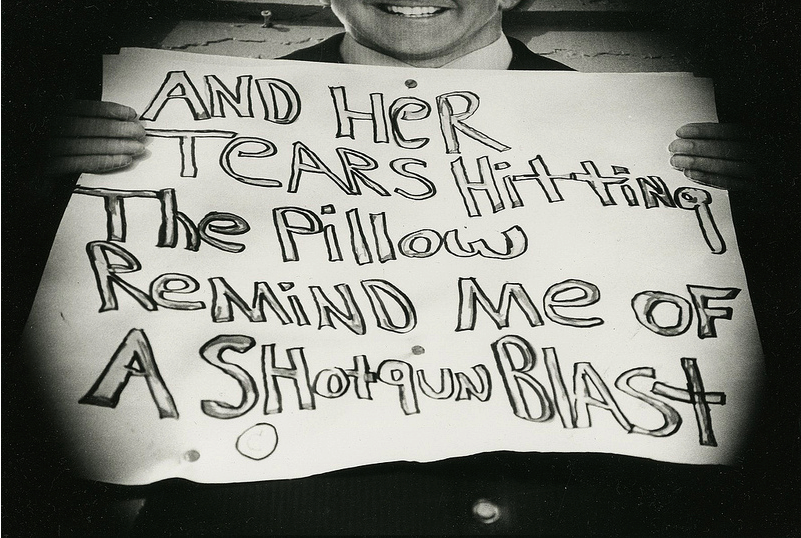 AND HeR
TeARS Hitting
The Pillow
ReMiND Me OF
A SHotgun BlASt